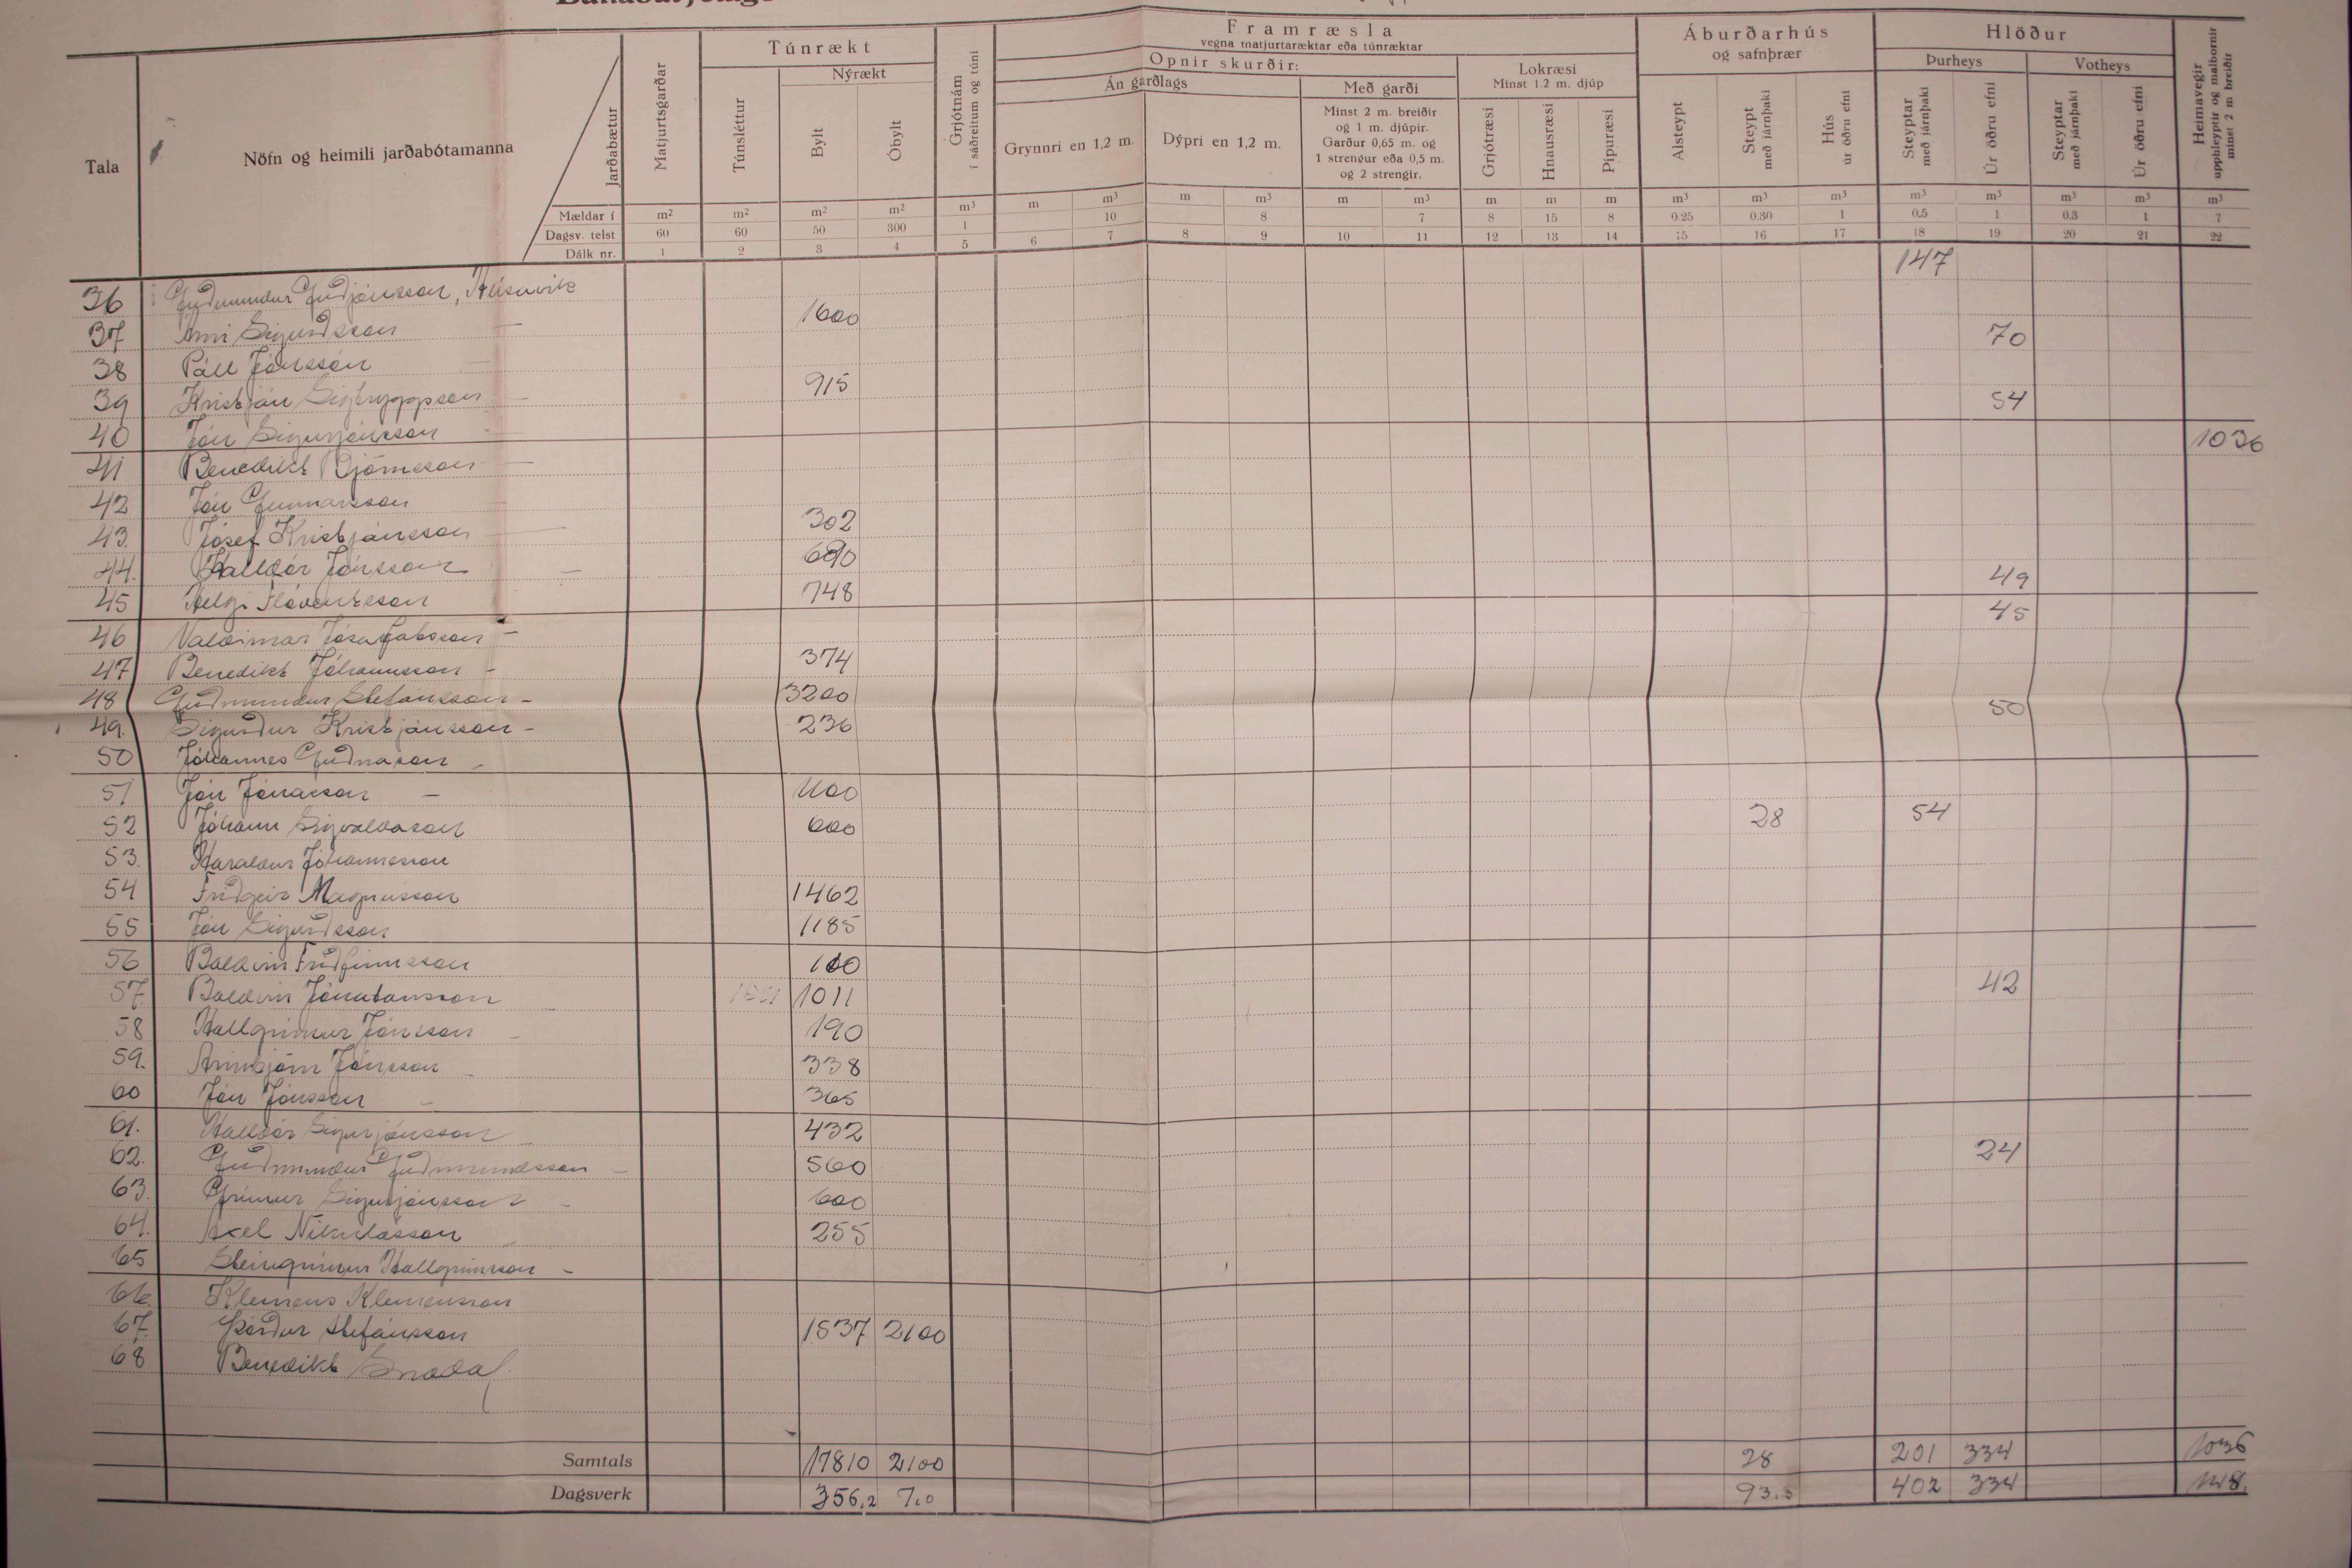 Túnrækt
Framræsla
vegna matjurtaræktar eða túnræktar
Áburðarhús
og safnþrær
Hlöður
Nýrækt
Opnir skurðir:
Lokræsi
Minst 1.2 m. djúp
Þurheys
Votheys
Án garðlags
Með garði
Tala
Nöfn og heimili jarðabótamanna
Jarðabætur
Matjurtsgarðar
Túnsléttur
Bylt
Óbylt
Grjótnám
í sáðreitum og túni
Grynnri en 1,2 m.
Dýpri en 1,2 m.
Minst 2 m. breiðir
og 1 m. djúpir.
Garður 0,65 m. og
1 strengur eða 0,5 m.
og 2 strengir.
Grjótræsi
Hnausræsi
Pípuræsi
Alsteypt
Steypt
með járnþaki
Hús
úr öðru efni
Steyptar
með járnþaki
Úr öðru efni
Steyptar
með járnþaki
Úr öðru efni
Heimavegir
upphleyptir og malbornir
minst 2 m breiðir
Mældar í m² m² m² m² m³ m m³ m m³ m m³ m m m m³ m³ m³ m³ m³ m³ m³ m³
Dagsv. telst 60 60 50 300 1 10 8 7 8 15 8 0.25 0.30 1 0.5 1 0.3 1 7
Dálk nr. 1 2 3 4 5 6 7 8 9 10 11 12 13 14 15 16 17 18 19 20 21 22
36 Guðmundur Guðjónsson, Húsavík 147
37 Árni Sigurðsson — 1600
38 Páll Jónsson — 70
39 Kristján Sigtryggsson — 915
40 Jón Sigurjónsson — 54
41 Benedikt Björnsson — 1036
42 Jón Gunnarsson —
43. Jósef Kristjánsson — 302
44. Halldór Jónsson — 690
45 Helgi Flóventsson 748 49
46 Valdimar Jósafatsson - 45
47 Benedikt Jóhannsson - 374
48 Guðmundur Stefánsson - 3200
49. Sigurður Kristjánsson - 236 50
50 Jóhannes Guðnason -
51 Jón Jónasson — 1100
52 Jóhann Sigvaldason 600 28 54
53. Haraldur Jóhannesson
54 Friðgeir Magnússon 1462
55 Jón Sigurðsson 1185
56 Baldvin Friðfinnsson 100
57. Baldvin Jónatansson 1011 42
58 Hallgrímur Jónsson - 190
59. Arnbjörn Jónsson - 338
60 Jón Jónsson — 365
61. Halldór Sigurjónsson 432
62. Guðmundur Guðmundsson - 560 24
63. Grímur Sigurjónsson - 600
64. Axel Nikulásson - 255
65 Steingrímur Hallgrímsson -
66. Klemens Klemensson
67. Þórður Stefánsson 1537 2100
68 Benedikt Snædal
Samtals 17810 2100 28 201 334 1036
Dagsverk 356,2 7.0 93.3 402 334 148.